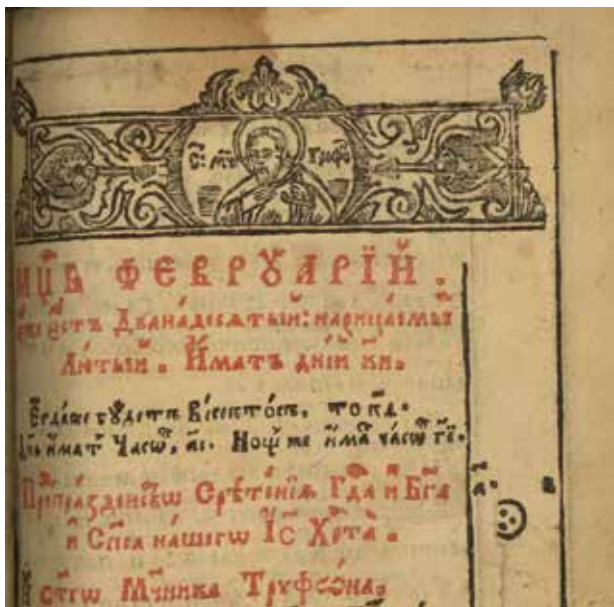 С҃: М҃ъ Трифѡ
МЦ҃Ъ ФЕВРꙊАРІЙ.
є҆́стъ Два́надесѧтый: нарица́емый
Лю́тый. И҆́матъ дні́й к҃и.
Егда́же бꙋ́детъ Ви́сектосъ, то к҃ѳ.
Дн҃ь и҆́мат Часѡ́въ, а҃і. Но́щь же и҆́ма часѡ́ г҃і.
Предпра́зденсвѡ Срѣ́тенїѧ Гдⷭ҇а и҆ Бг҃а
и҆ Спⷭ҇а на́шегѡ І҆С Хрⷭ҇та̀.
ст҃гѡ Мч҃ника Трꙋфѡ́на.
а҃.
в